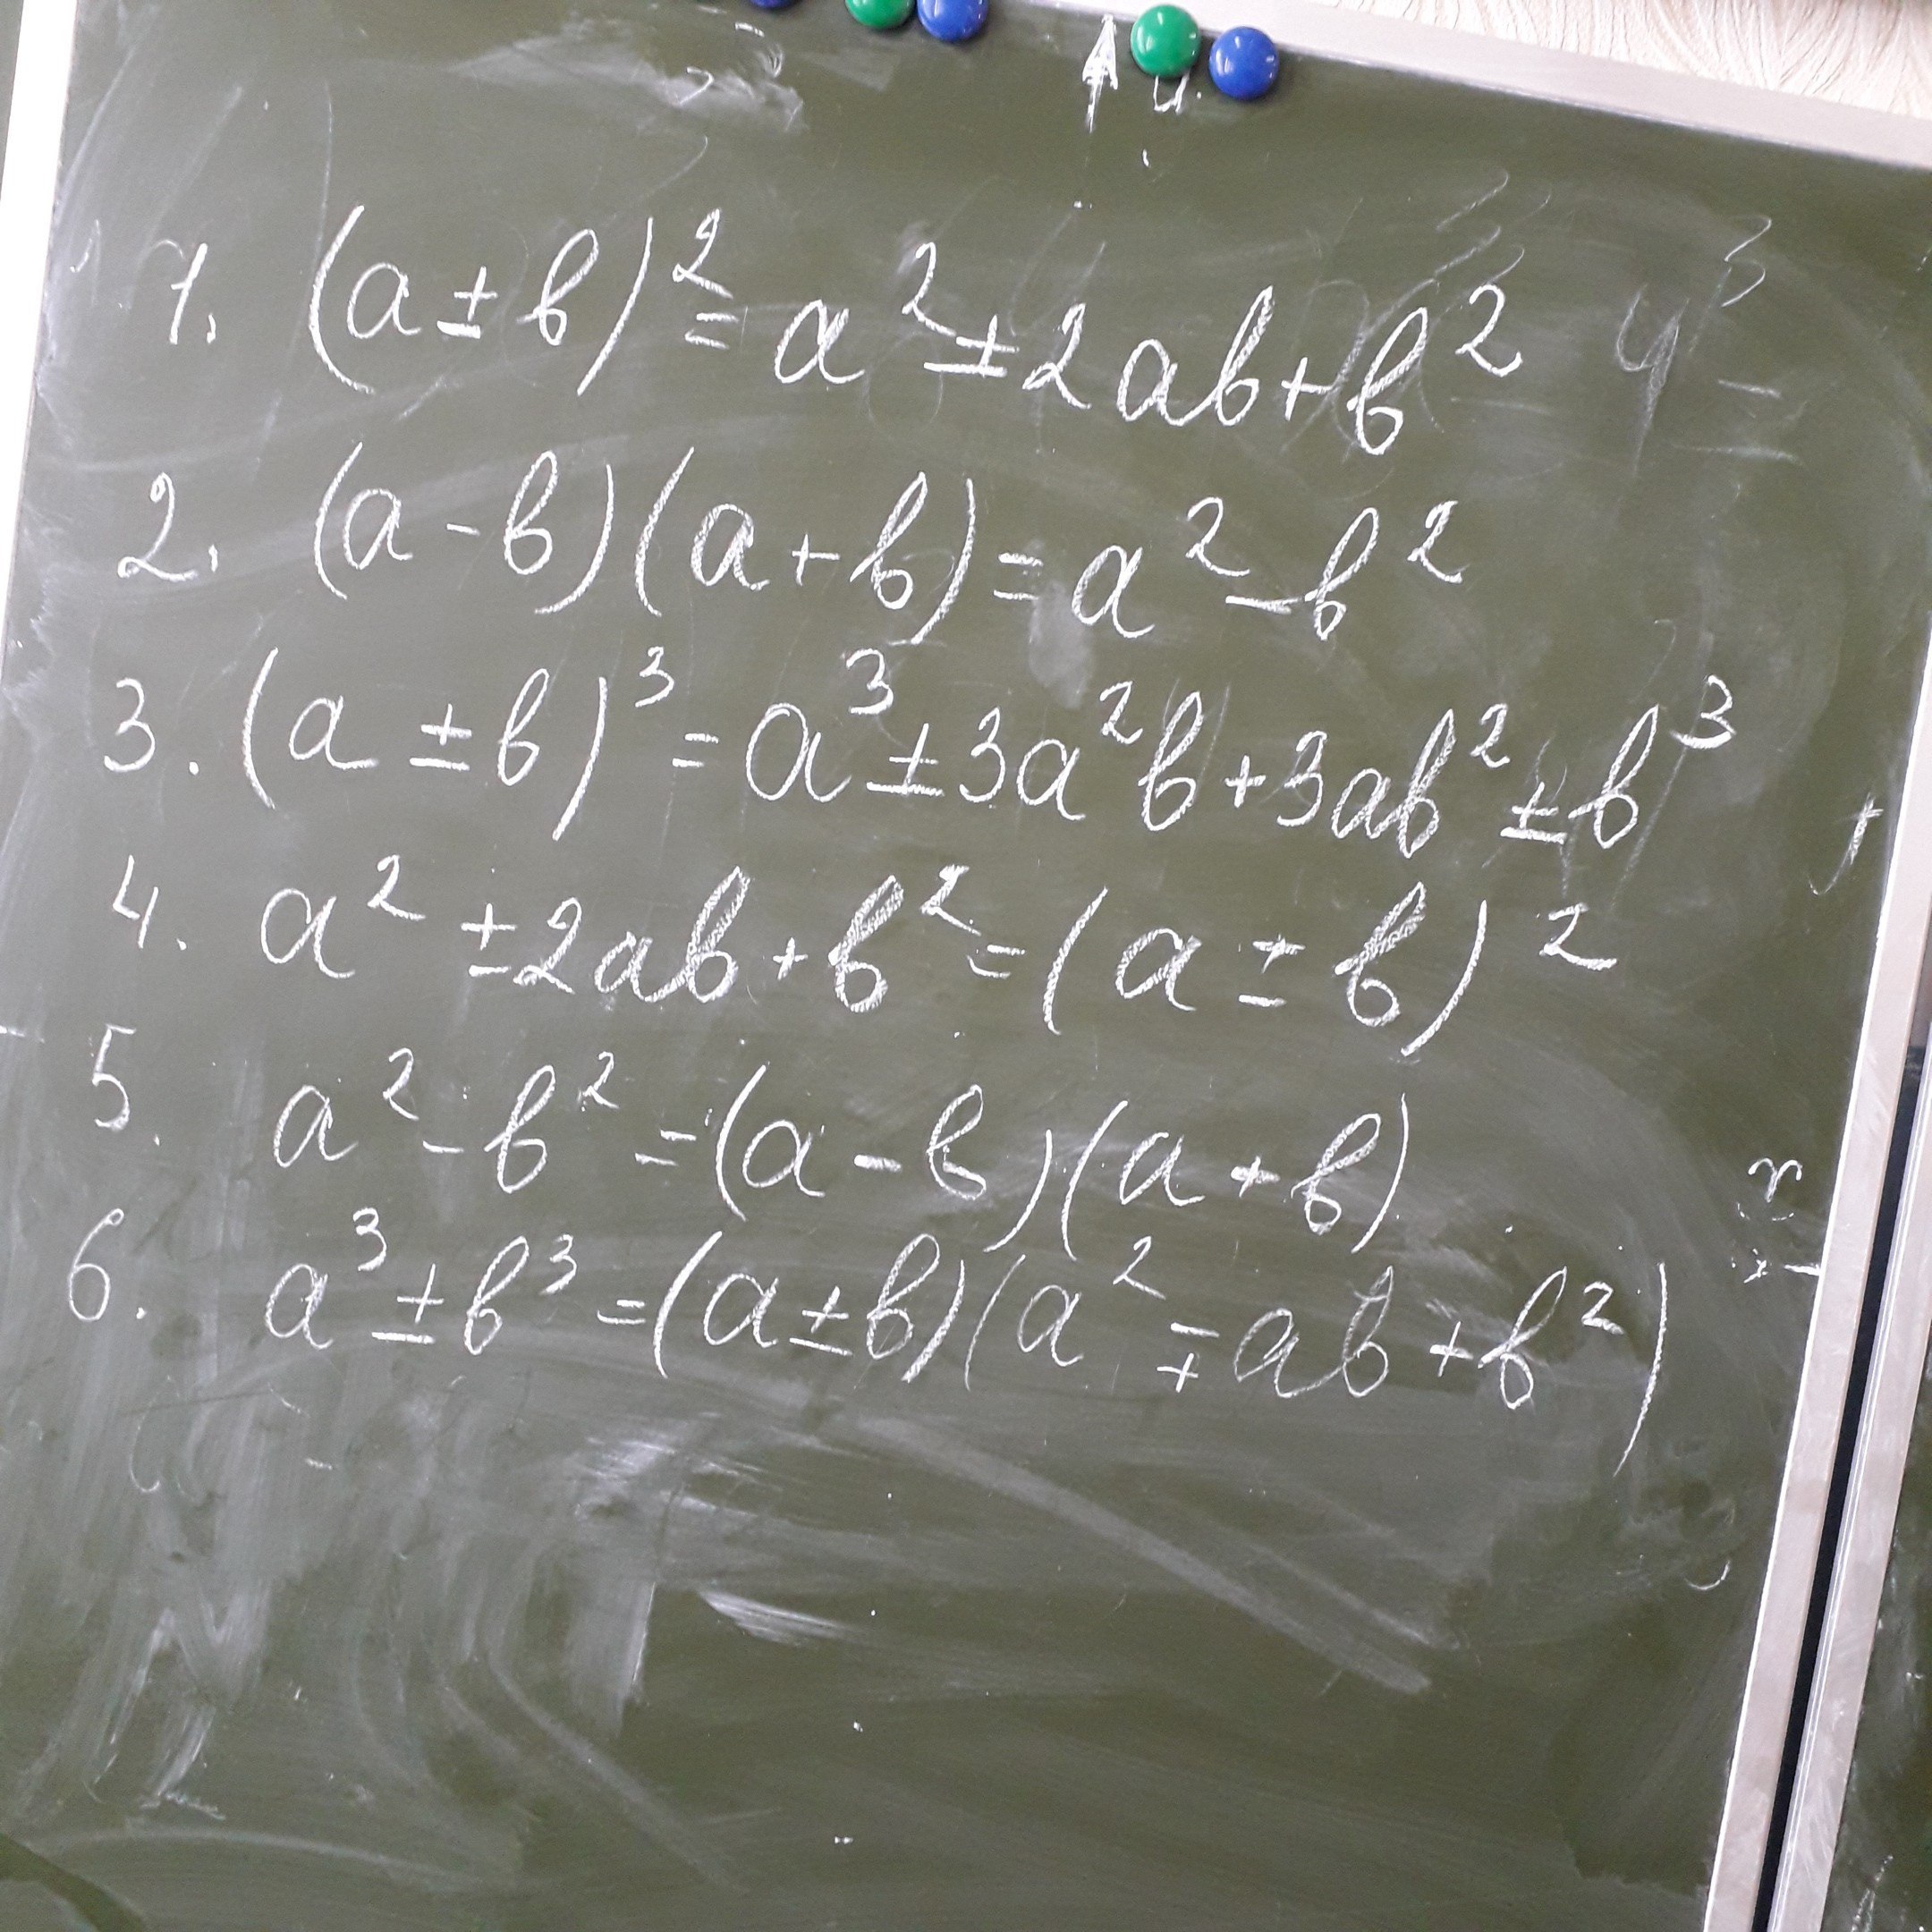 1. (a ± b)² = a² ± 2ab + b²
2. (a - b)(a + b) = a² - b²
3. (a ± b)³ = a³ ± 3a²b + 3ab² ± b³
4. a² ± 2ab + b² = (a ± b)²
5. a² - b² = (a - b)(a + b)
6. a³ ± b³ = (a ± b)(a² ∓ ab + b²)